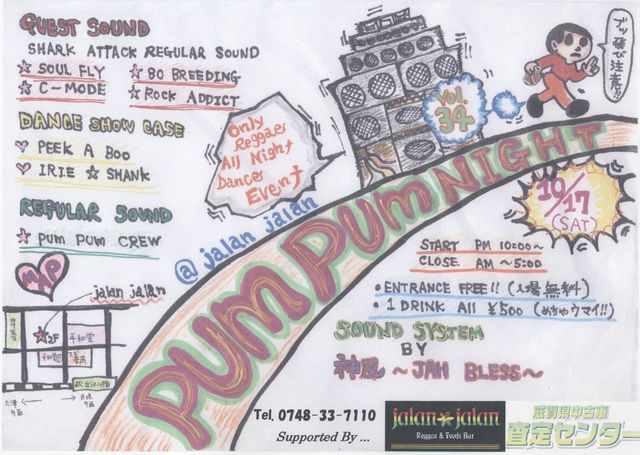 GUEST SOUND
SHARK ATTACK REGULAR SOUND
☆ SOUL FLY
☆ BO BREEDING
☆ C-MODE
☆ ROCK ADDICT
DANCE SHOW CASE
♡ PEEK A BOO
♡ IRIE ☆ SHANK
REGULAR SOUND
☆ PUM PUM CREW
MAP
jalan jalan
★2F
平和堂
Only
Reggae
All Night
Dancer
Event
@ jalan jalan
PUM PUM NIGHT
Vol.
34
ブッ飛び注意!!
10/17
(SAT)
START PM 10:00~
CLOSE AM ~5:00
・ENTRANCE FREE!! (入場無料)
・1 DRINK All ¥500 (めちゃウマイ!!)
SOUND SYSTEM
BY
神風 ~JAH BLESS~
Tel. 0748-33-7110
Supported By ...
jalan★jalan
Reggae & Foods Bar
滋賀県中古車
査定センター